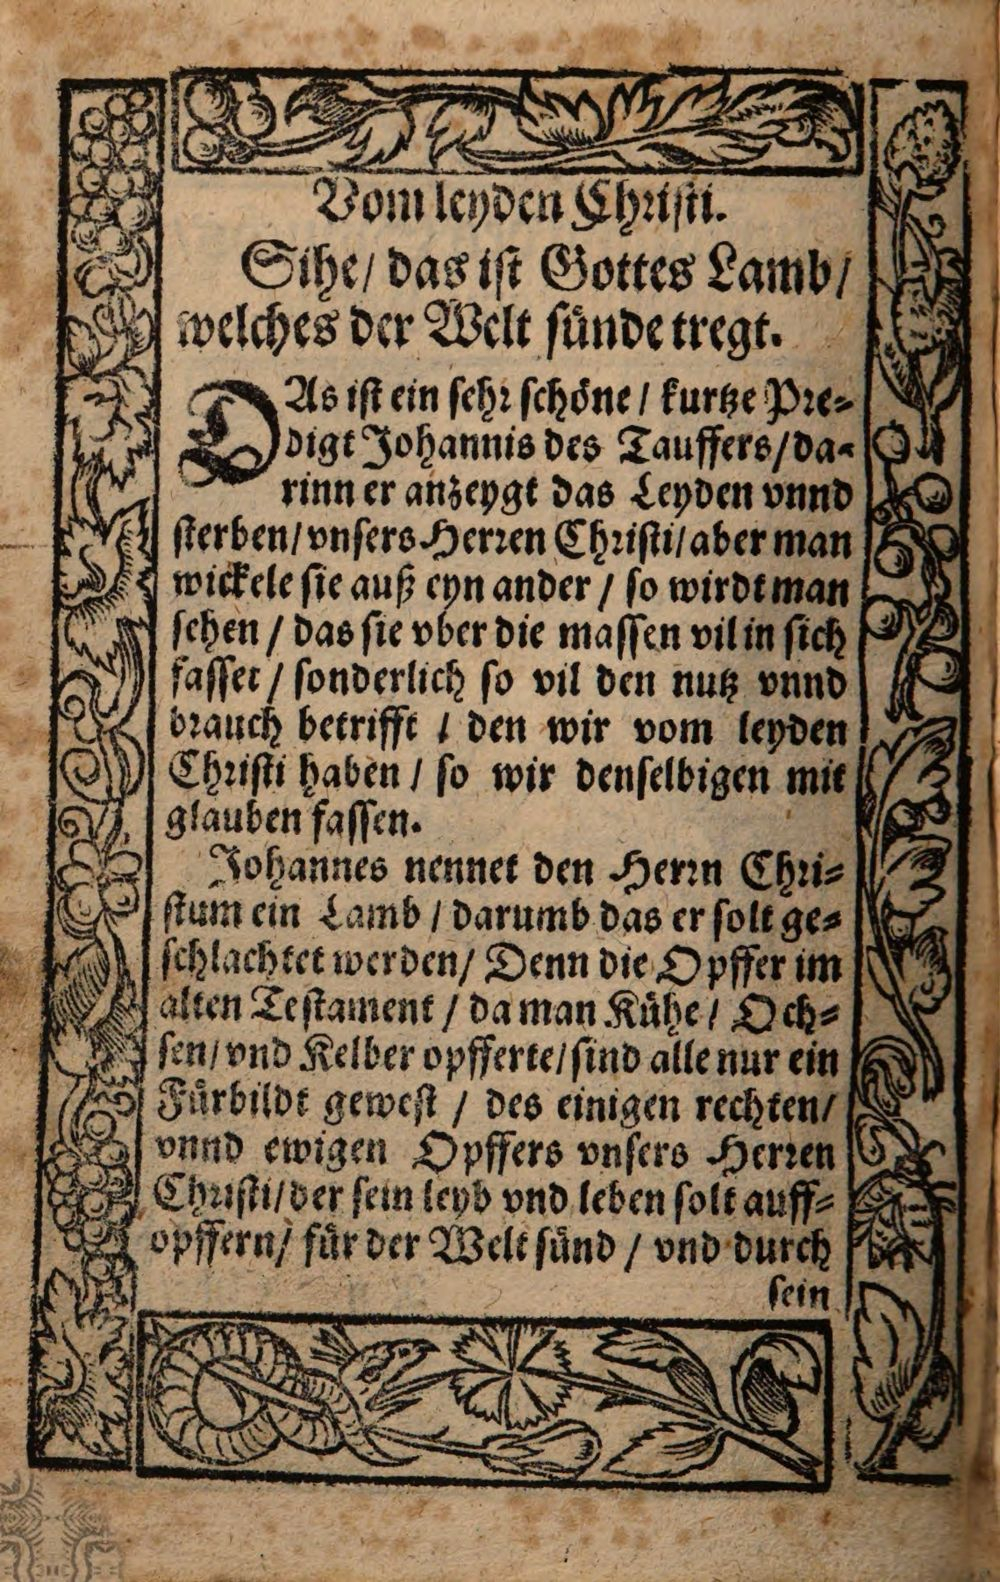 Vom leyden Christi.
Sihe/ das ist Gottes Lamb/
welches der Welt sünde tregt.
DAs ist ein sehr schöne / kurtze Pre⸗
digt Johannis des Tauffers/ da⸗
rinn er anzeygt das Leyden vnnd
sterben/ vnsers Herren Christi/ aber man
wickele sie auß eyn ander / so wirdt man
sehen / das sie vber die massen vil in sich
fasset / sonderlich so vil den nutz vnnd
brauch betrifft / den wir vom leyden
Christi haben / so wir denselbigen mit
glauben fassen.
Johannes nennet den Herrn Chri⸗
stum ein Lamb / darumb das er solt ge⸗
schlachtet werden/ Denn die Opffer im
alten Testament / da man Kühe / Och⸗
sen/ vnd Kelber opfferte/ sind alle nur ein
Fürbildt gewest / des einigen rechten/
vnnd ewigen Opffers vnsers Herren
Christi/ der sein leyb vnd leben solt auff⸗
opffern/ für der Welt sünd / vnd durch
sein